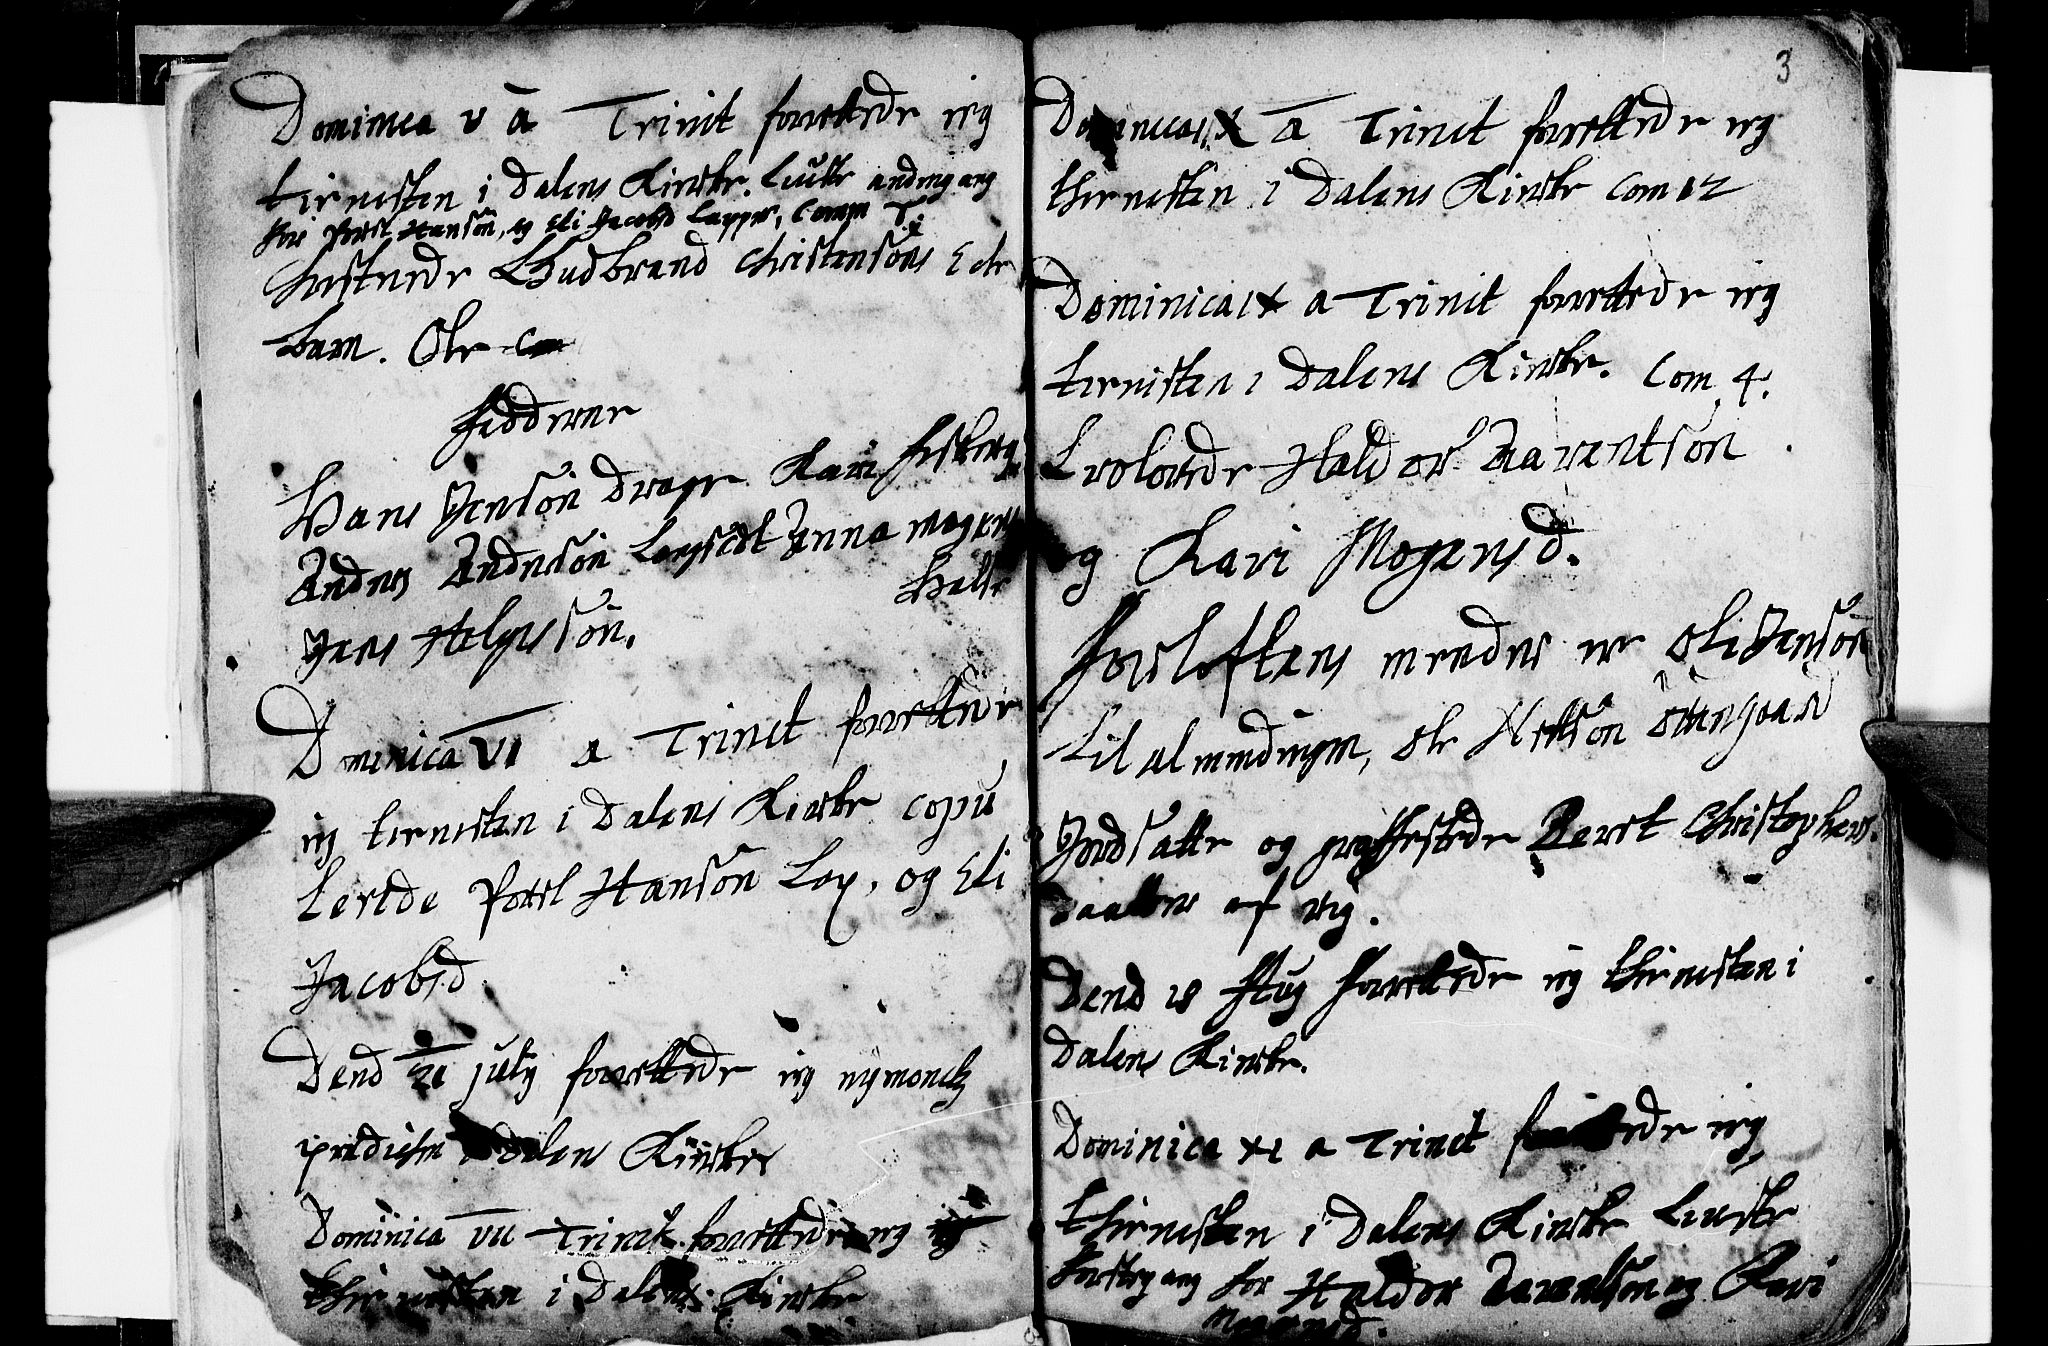 Dominica V a Trinit forrettede ieg
tienesten i Dalens Kircke. Liuste anden gang
for Povel Hanson, og Eli Jacobsd Lapper, Comm
christnede Gudbrand Christensöns Echte
barn. Ole
faddere
Hans Jenson drage Kari
Anders Anderson Anna
Jens Helgesson.
Dominica VI a Trinit forrettede
ieg tienesten i Dalens Kircke copu
lerede Povel Hanson Lap, og Eli
Jacobsd
Dend 21 july forrettede ieg nymonetz
prædichen i Dalens Kircke
Dominica VII Trinit forrettede ieg
thienesten i Dalens Kircke
3
Dominica IX a Trinit forrettede ieg
thienesten i Dalens Kircke Com 12
Dominica IX a Trinit forrettede ieg
tienisten i Dalens Kircke. Com. 4.
trolovede Haldor Aarentson
og Kari Mogensd.
forloftens mender er Oli Jenson
til almendingen, Ole Östengaard
Jordsatte og Beret Christophers
daatter af
Dend 18 Aug forrettede ieg thienesten i
Dalens Kircke.
Dominica XI a Trinit forrettede ieg
thienesten i Dalens Kircke Liuste
förstegang for Haldor Aarentson og Kari
Mogensd.